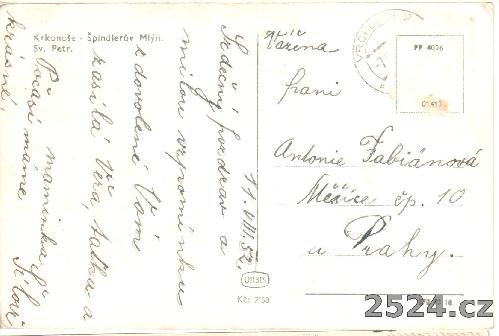 Krkonoše - Špindlerův Mlýn.
Sv. Petr.
11.VIII.52.
Srdečný pozdrav a
milou vzpomínku
z dovolené Vám
zasílá Věra, taťka a
maminka
Počasí máme
krásné.
VRCHLABÍ
PP 4026
Vážená
paní
Antonie Fabiánová
Měšice čp. 10
u Prahy.
Kčs 2'50
2524.cz